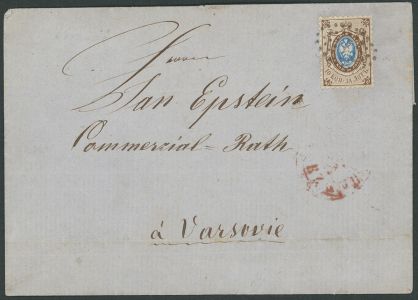 Herrn
Jan Epstein
Commercial=Rath
à Varsovie